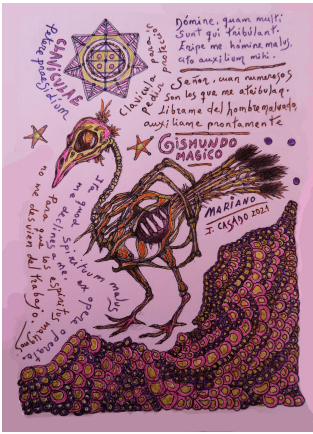 CLAVICULAE
petere praesidium
Clavícula para
pedir protección
Dómine, quam multi
sunt qui tribulant.
Eripe me hómine malus,
cito auxilium mihi.
Señor, cuan numerosos
son los que me atribulan.
Librame del hombre malvado,
auxiliame prontamente
GISMUNDO
MAGICO
MARIANO
J. CASADO 2021
Ita quod Spirituum malus
me declines a me, ex opere operato
Para que los espiritus malignos
no me desvien del trabajo.